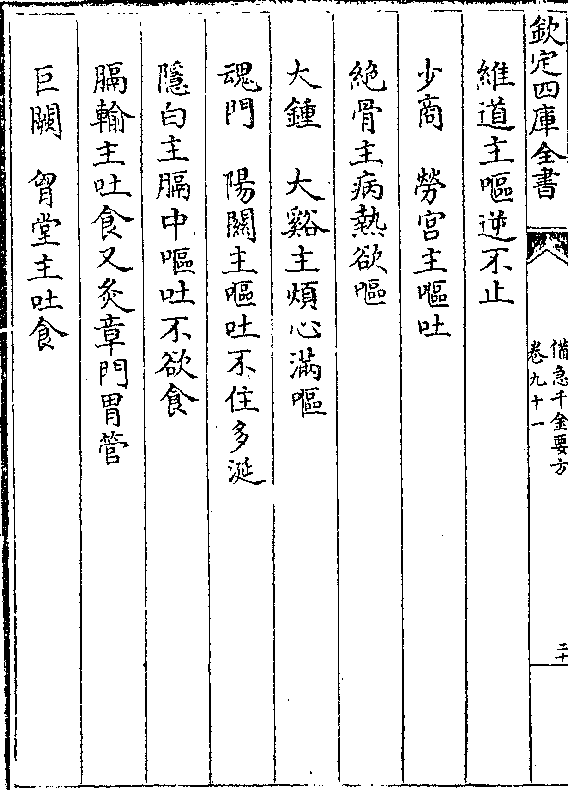 欽定四庫全書
備急千金要方
卷九十一
二十
維道主嘔逆不止
少商　勞宮主嘔吐
絶骨主病熱欲嘔
大鍾　大谿主煩心滿嘔
魂門　陽關主嘔吐不住多涎
隱白主膈中嘔吐不欲食
膈輸主吐食又灸章門胃管
巨闕　胷堂主吐食